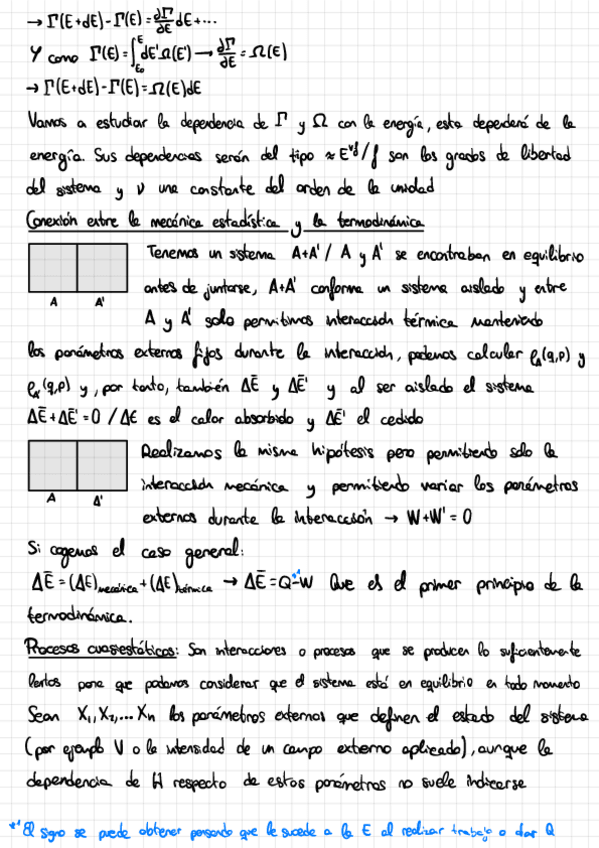 → Γ(E+dE)-Γ(E)=∂Γ/∂E dE+...
Y como Γ(E)=∫_{E₀}^{E} dE'Ω(E') → ∂Γ/∂E = Ω(E)
→ Γ(E+dE)-Γ(E)=Ω(E)dE
Vamos a estudiar la dependencia de Γ y Ω con la energía, esta dependerá de la
energía. Sus dependencias serán del tipo ≈ E^{νf} / f son los grados de libertad
del sistema y ν una constante del orden de la unidad
Conexión entre la mecánica estadística y la termodinámica
Tenemos un sistema A+A' / A y A' se encontraban en equilibrio
antes de juntarse, A+A' conforma un sistema aislado y entre
A A'
A y A' solo permitimos interacción térmica manteniendo
los parámetros externos fijos durante la interacción, podemos calcular ρ_A(q,p) y
ρ_{A'}(q,p) y, por tanto, también ΔĒ y ΔĒ' y al ser aislado el sistema
ΔĒ+ΔĒ'=0 / ΔE es el calor absorbido y ΔĒ' el cedido
Realizamos la misma hipótesis pero permitiendo solo la
interacción mecánica y permitiendo variar los parámetros
A A'
externos durante la interacción → W+W'=0
Si cogemos el caso general:
ΔĒ=(ΔE)mecánica+(ΔE)térmica → ΔĒ=Q-*¹W Que es el primer principio de la
termodinámica.
Procesos cuasiestáticos: Son interacciones o procesos que se producen lo suficientemente
lentos para que podamos considerar que el sistema está en equilibrio en todo momento
Sean X₁,X₂,...Xn los parámetros externos que definen el estado del sistema
(por ejemplo V o la intensidad de un campo externo aplicado), aunque la
dependencia de H respecto de estos parámetros no suele indicarse
*¹ El signo se puede obtener pensando que le sucede a la E al realizar trabajo o dar Q